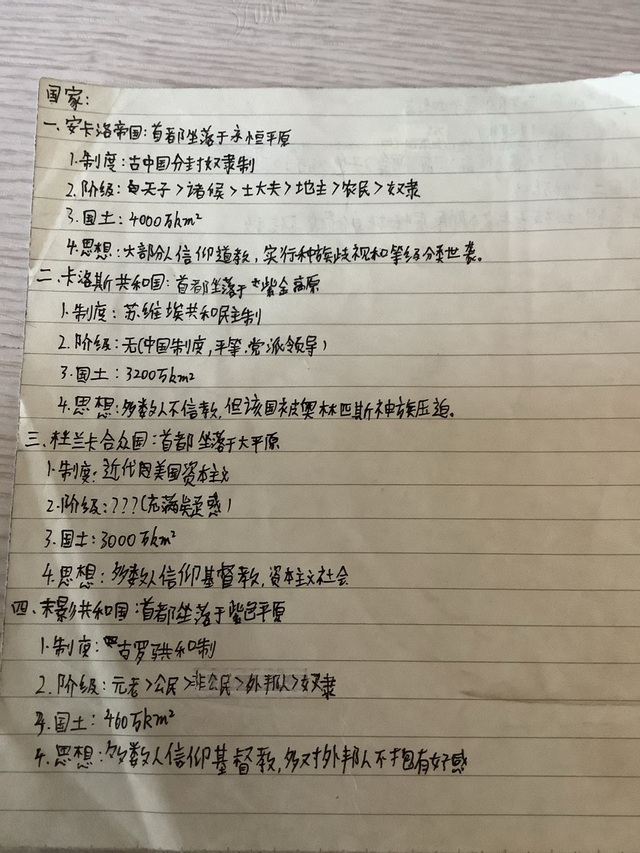 国家:
一、安卡洛帝国:首都坐落于永恒平原
1.制度:古中国分封奴隶制
2.阶级:天子>诸候>士大夫>地主>农民>奴隶
3.国土:4000万km²
4.思想:大部分人信仰道教,实行种族歧视和等级分类世袭。
二、卡洛斯共和国:首都坐落于紫金高原
1.制度:苏维埃共和民主制
2.阶级:无(中国制度,平等.党派领导)
3.国土:3200万km²
4.思想:多数人不信教,但该国被奥林匹斯神族压迫。
三、杜兰卡合众国:首都坐落于大平原
1.制度:近代美国资本主义
2.阶级:???(充满疑惑)
3.国土:3000万km²
4.思想:多数人信仰基督教,资本主义社会
四、末影共和国:首都坐落于紫色平原
1.制度:古罗马共和制
2.阶级:元老>公民>非公民>外邦人>奴隶
3.国土:460万km²
4.思想:多数人信仰基督教,多对外邦人不抱有好感